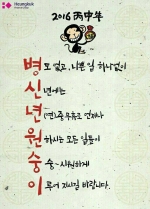 Heungkuk
2016 丙申年
병 도 없고, 나쁜 일 하나없이
신 년에는
년 (연)중무휴로 언제나
원 하시는 모든 일들이
숭 숭~ 시원하게
이 루어 지시길 바랍니다.